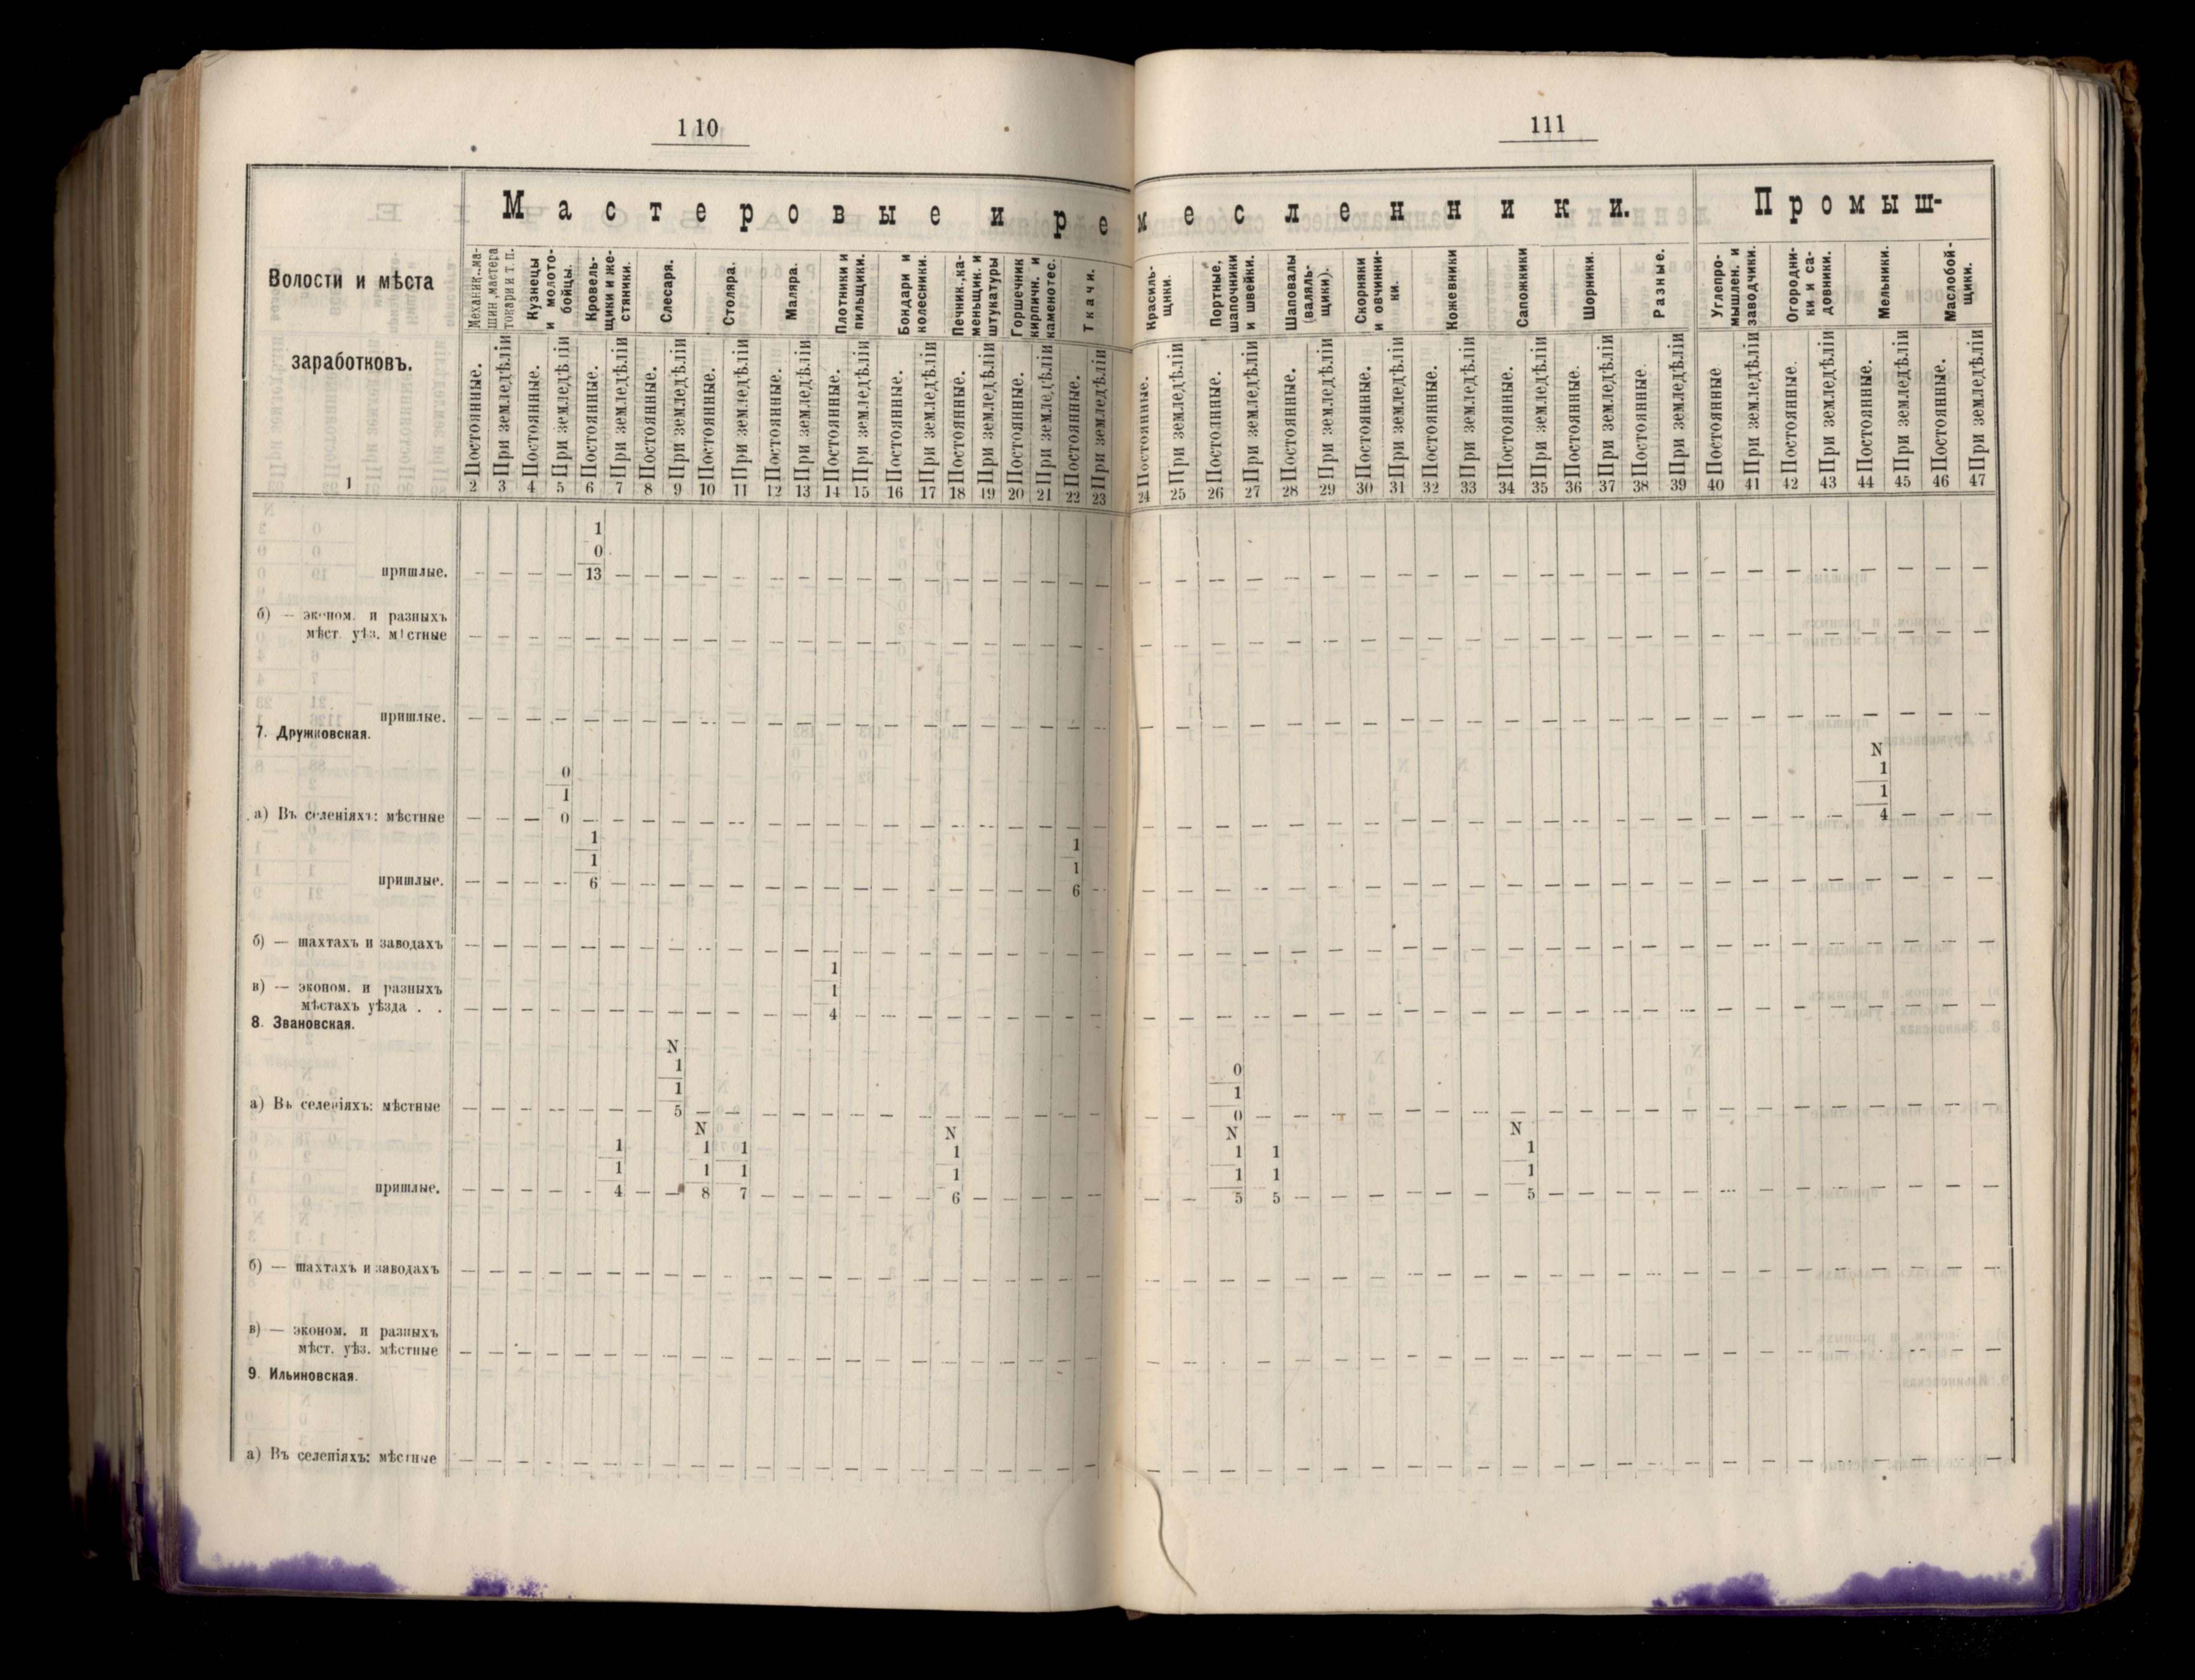 110
111
Мастеровые и ремесленники.
Промыш-
Волости и мѣста
заработковъ.
Механик.,ма-
шин.,мастера
токари и т. п.
Кузнецы
и молото-
бойцы.
Кровель-
щики и же-
стяники.
Слесаря.
Столяра.
Маляра.
Плотники и
пильщики.
Бондари и
колесники.
Печник.,ка-
меньщик. и
штукатуры
Горшечник
кирпичн. и
каменотес.
Ткачи.
Красиль-
щики.
Портные,
шапочники
и швейки.
Шаповалы
(валяль-
щики).
Скорняки
и овчинни-
ки.
Кожевники
Сапожники
Шорники.
Разные.
Углепро-
мышлен. и
заводчики.
Огородни-
ки и са-
довники.
Мельники.
Маслобой-
щики.
Постоянные. При земледѣліи Постоянные. При земледѣліи Постоянные. При земледѣліи Постоянные. При земледѣліи Постоянные. При земледѣліи Постоянные. При земледѣліи Постоянные. При земледѣліи Постоянные. При земледѣліи Постоянные. При земледѣліи Постоянные. При земледѣліи Постоянные. При земледѣліи
Постоянные. При земледѣліи Постоянные. При земледѣліи Постоянные. При земледѣліи Постоянные. При земледѣліи Постоянные. При земледѣліи Постоянные. При земледѣліи Постоянные. При земледѣліи Постоянные. При земледѣліи Постоянные При земледѣліи Постоянные. При земледѣліи Постоянные. При земледѣліи Постоянные. При земледѣліи
1 2 3 4 5 6 7 8 9 10 11 12 13 14 15 16 17 18 19 20 21 22 23 24 25 26 27 28 29 30 31 32 33 34 35 36 37 38 39 40 41 42 43 44 45 46 47
1
0
пришлые. — — — — 13 — — — — — — — — — — — — — — — — — — — — — — — — — — — — — — — — — — — — — — — — —
б) — эконом. и разныхъ
мѣст. уѣз. мѣстные — — — — — — — — — — — — — — — — — — — — — — — — — — — — — — — — — — — — — — — — — — — — — —
пришлые. — — — — — — — — — — — — — — — — — — — — — — — — — — — — — — — — — — — — — — — — — — — — — —
7. Дружковская.
N
0 1
1 1
а) Въ селеніяхъ: мѣстные — — — 0 — — — — — — — — — — — — — — — — — — — — — — — — — — — — — — — — — — — — — — 4 — — —
1 1
1 1
пришлые. — — — — 6 — — — — — — — — — — — — — — — 6 — — — — — — — — — — — — — — — — — — — — — — — — —
б) — шахтахъ и заводахъ — — — — — — — — — — — — — — — — — — — — — — — — — — — — — — — — — — — — — — — — — — — — — —
1
в) — эконом. и разныхъ 1
мѣстахъ уѣзда . . — — — — — — — — — — — — 4 — — — — — — — — — — — — — — — — — — — — — — — — — — — — — — — — —
8. Звановская.
N
1 0
1 1
а) Въ селеніяхъ: мѣстные — — — — — — — 5 — — — — — — — — — — — — — — — — 0 — — — — — — — — — — — — — — — — — — — — —
N N N N
1 1 1 1 1 1 1
1 1 1 1 1 1 1
пришлые. — — — — — 4 — — 8 7 — — — — — — 6 — — — — — — — 5 5 — — — — — — 5 — — — — — — — — — — — — —
б) — шахтахъ и заводахъ — — — — — — — — — — — — — — — — — — — — — — — — — — — — — — — — — — — — — — — — — — — — — —
в) — эконом. и разныхъ
мѣст. уѣз. мѣстные — — — — — — — — — — — — — — — — — — — — — — — — — — — — — — — — — — — — — — — — — — — — — —
9. Ильиновская.
а) Въ селеніяхъ: мѣстные — — — — — — — — — — — — — — — — — — — — — — — — — — — — — — — — — — — — — — — — — — — — — —